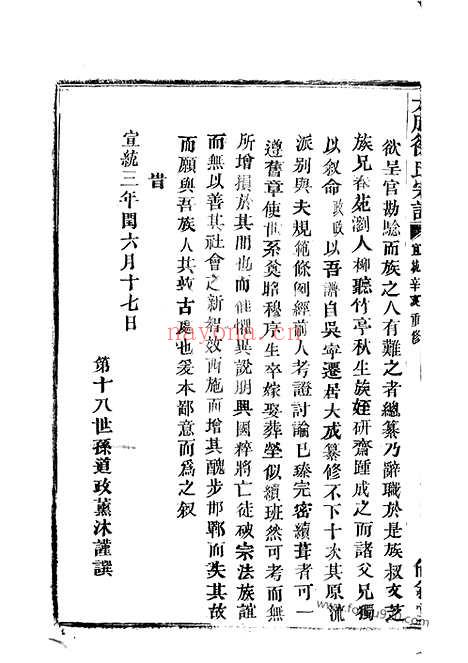 欲呈官勘驗而族之人有難之者總纂乃辭職於是族叔文芝
族兄春苑瀏人柳聽竹亭秋生族姪研齋踵成之而諸父兄獨
以叙命政政以吾譜自吳寧遷居大成纂修不下十次其原流
派別與夫規範條例經前人考證討論已臻完密續葺者可一
遵舊章使世系奠昭穆序生卒嫁娶葬塋似續班然可考而無
所增損於其間也而惟懼異說朋興國粹將亡徒破宗法族誼
而無以善其社會之新組效西施而增其醜步邯鄲而失其故
而願與吾族人共敦古處也爰本鄙意而爲之叙
旹
宣統三年閏六月十七日
第十八世孫道政薰沐謹譔
氏宗譜
宣統辛亥重修
nayona.cn
www.foxiu9g1.com